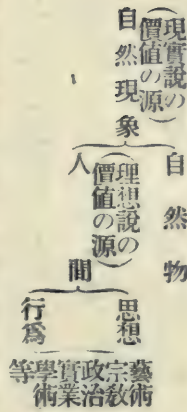 (現實説の
價値の源)
自然現象
自然物
(理想説の
價値の源)
人間
思想
行爲
藝術
宗教
政治
實業
學術
等